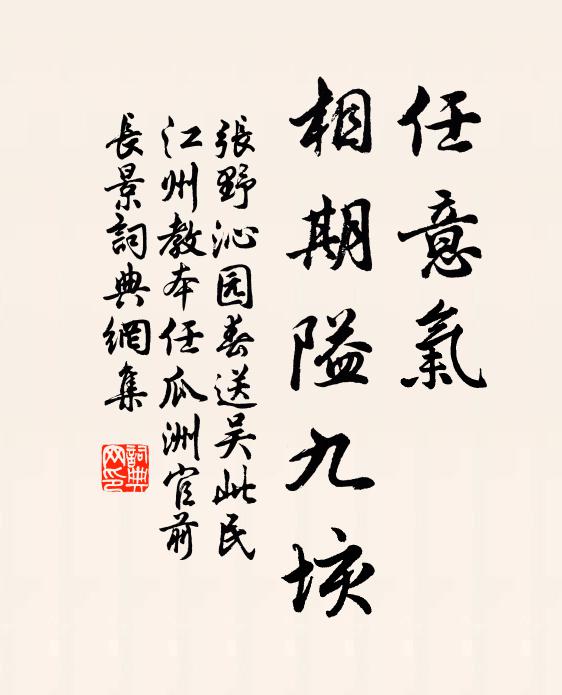 任意氣
相期隘九垓
張野沁园春送吴此民
江州教本任瓜洲官前
長景詞典網集
詞典
网印